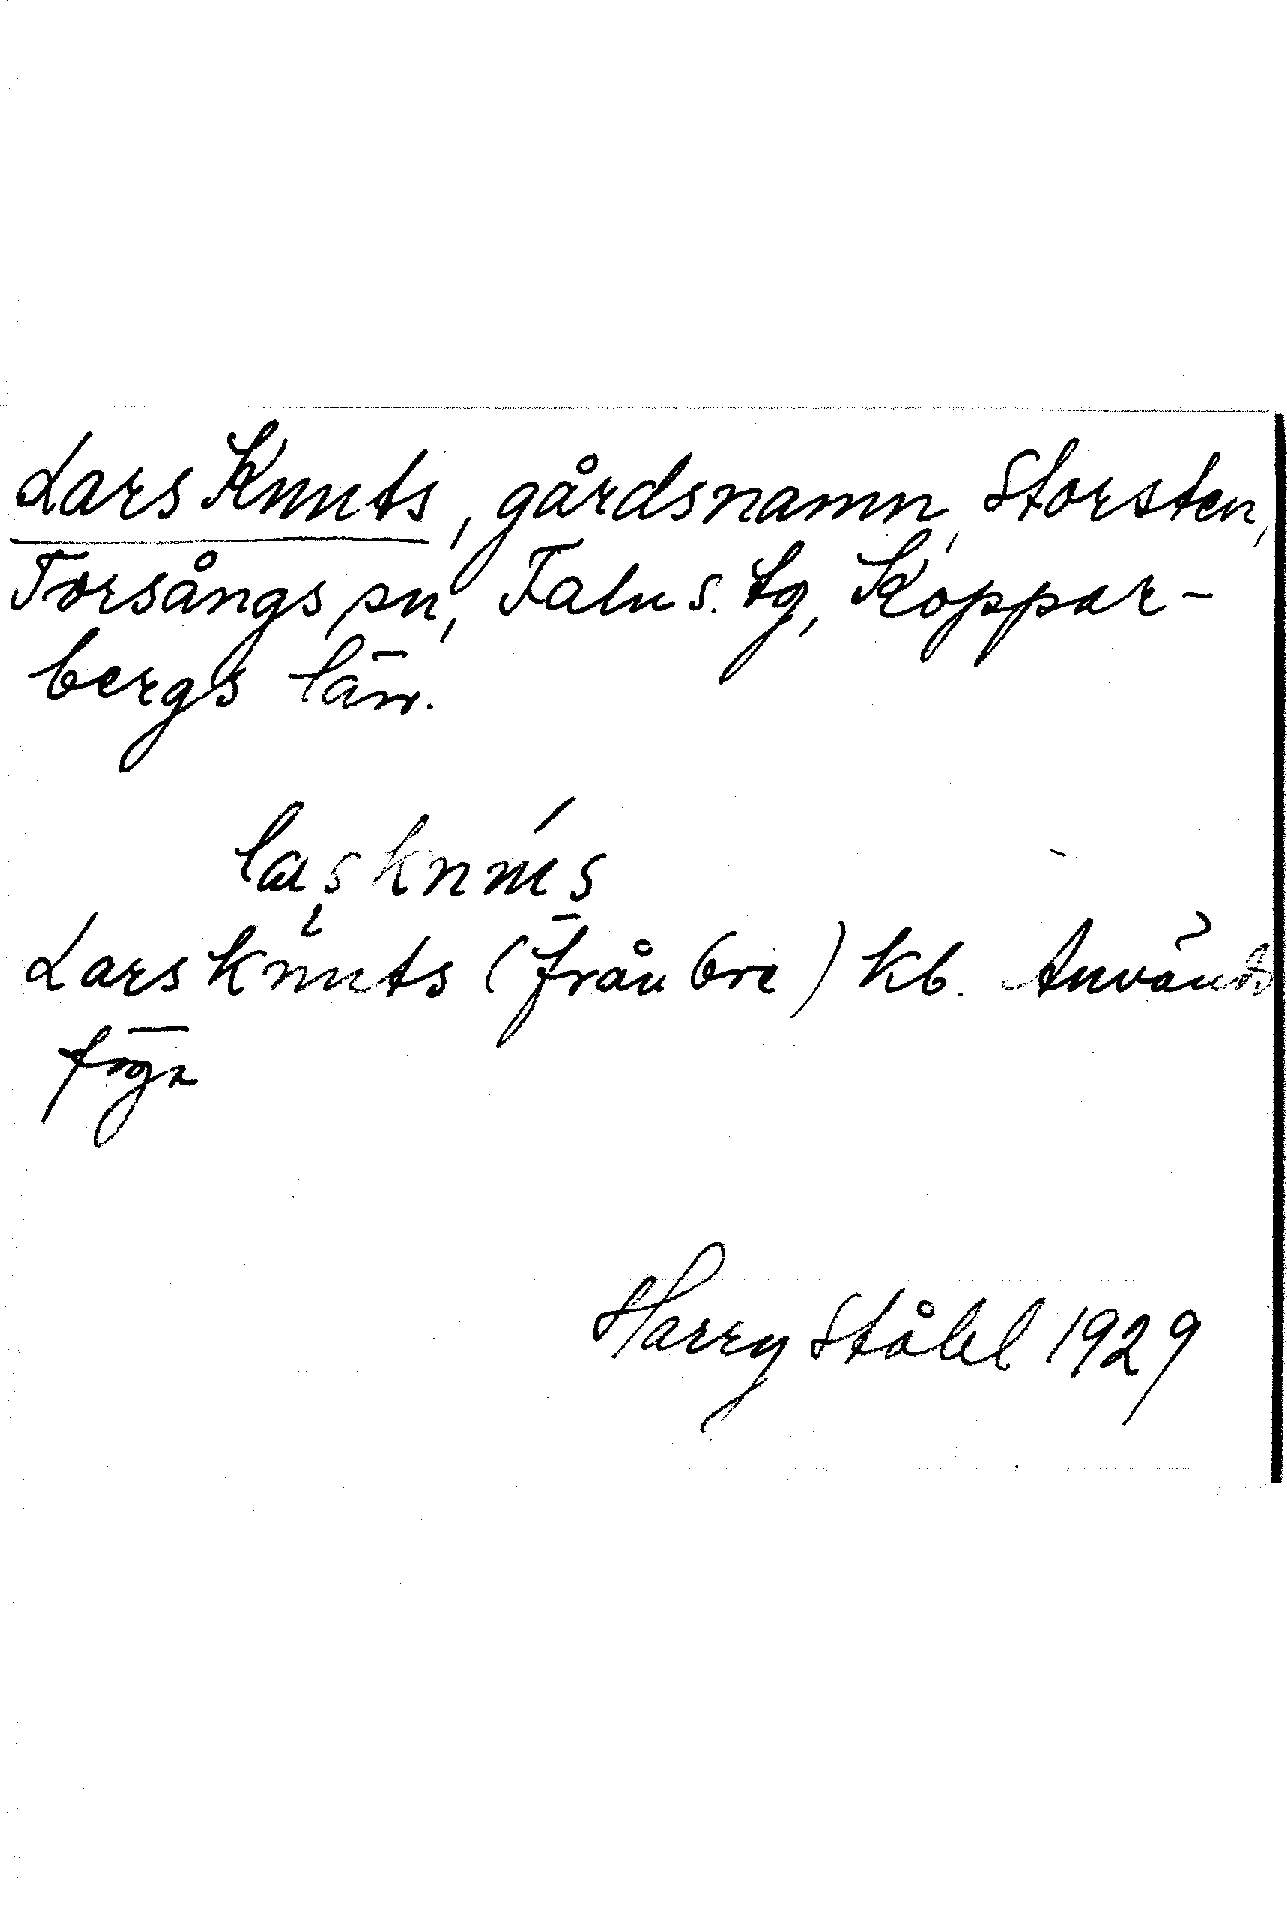 Lars Knuts, gårdsnamn, Storsten,
Torsångs sn, Falu s. tg, Koppar-
bergs län.
Lars Knuts (från Ore) kb. Används
föga
Harry Ståhl 1929